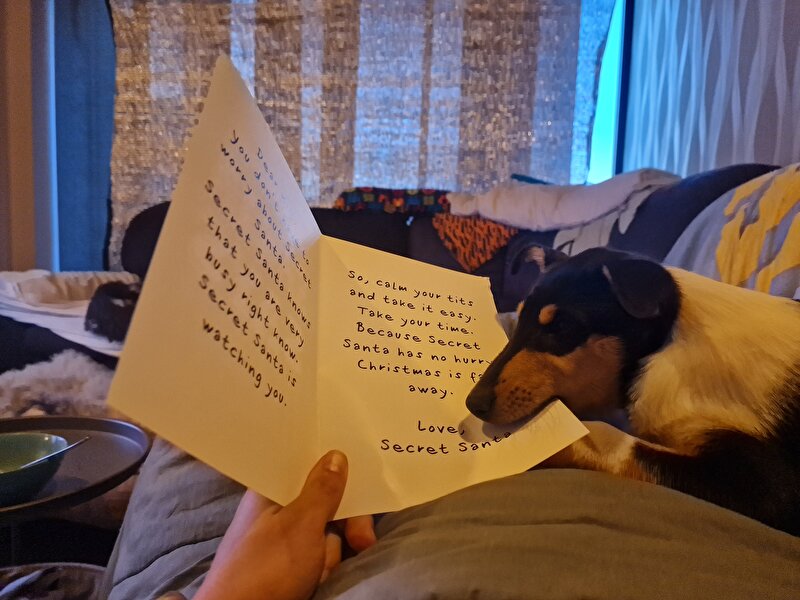 Dear
you don't to
worry about Secret
Santa.
Secret Santa knows
that you are very
busy right know.
Secret Santa is
watching you.
So, calm your tits
and take it easy.
Take your time.
Because Secret
Santa has no hurry
Christmas is
away.
Love,
Secret Santa